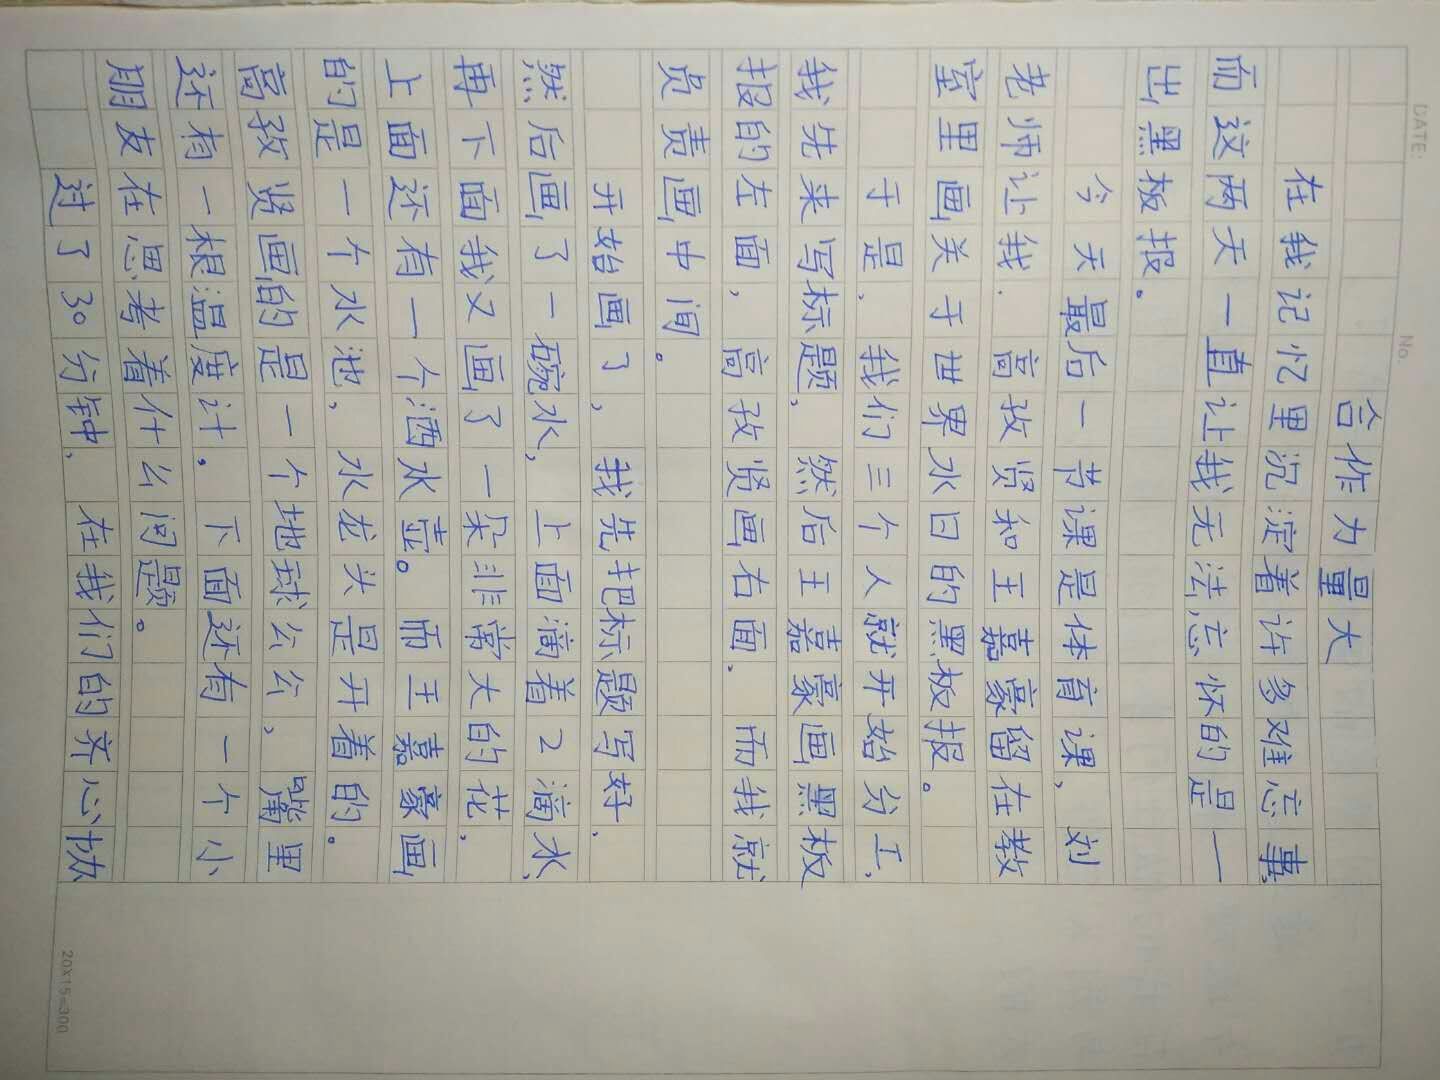 DATE:
No.
合作力量大
在我记忆里沉淀着许多难忘事,
而这两天一直让我无法忘怀的是一
出黑板报。
今天最后一节课是体育课,刘
老师让我.高孜贤和王嘉豪留在教
室里画关于世界水日的黑板报。
于是,我们三个人就开始分工,
我先来写标题,然后王嘉豪画黑板
报的左面,高孜贤画右面,而我就
负责画中间。
开始画了,我先把标题写好,
然后画了一碗水,上面滴着2滴水,
再下面我又画了一朵非常大的花,
上面还有一个洒水壶。而王嘉豪画
的是一个水池,水龙头是开着的。
高孜贤画的是一个地球公公,嘴里
还有一根温度计,下面还有一个小
朋友在思考着什么问题。
过了30分钟,在我们的齐心协
20X15=300